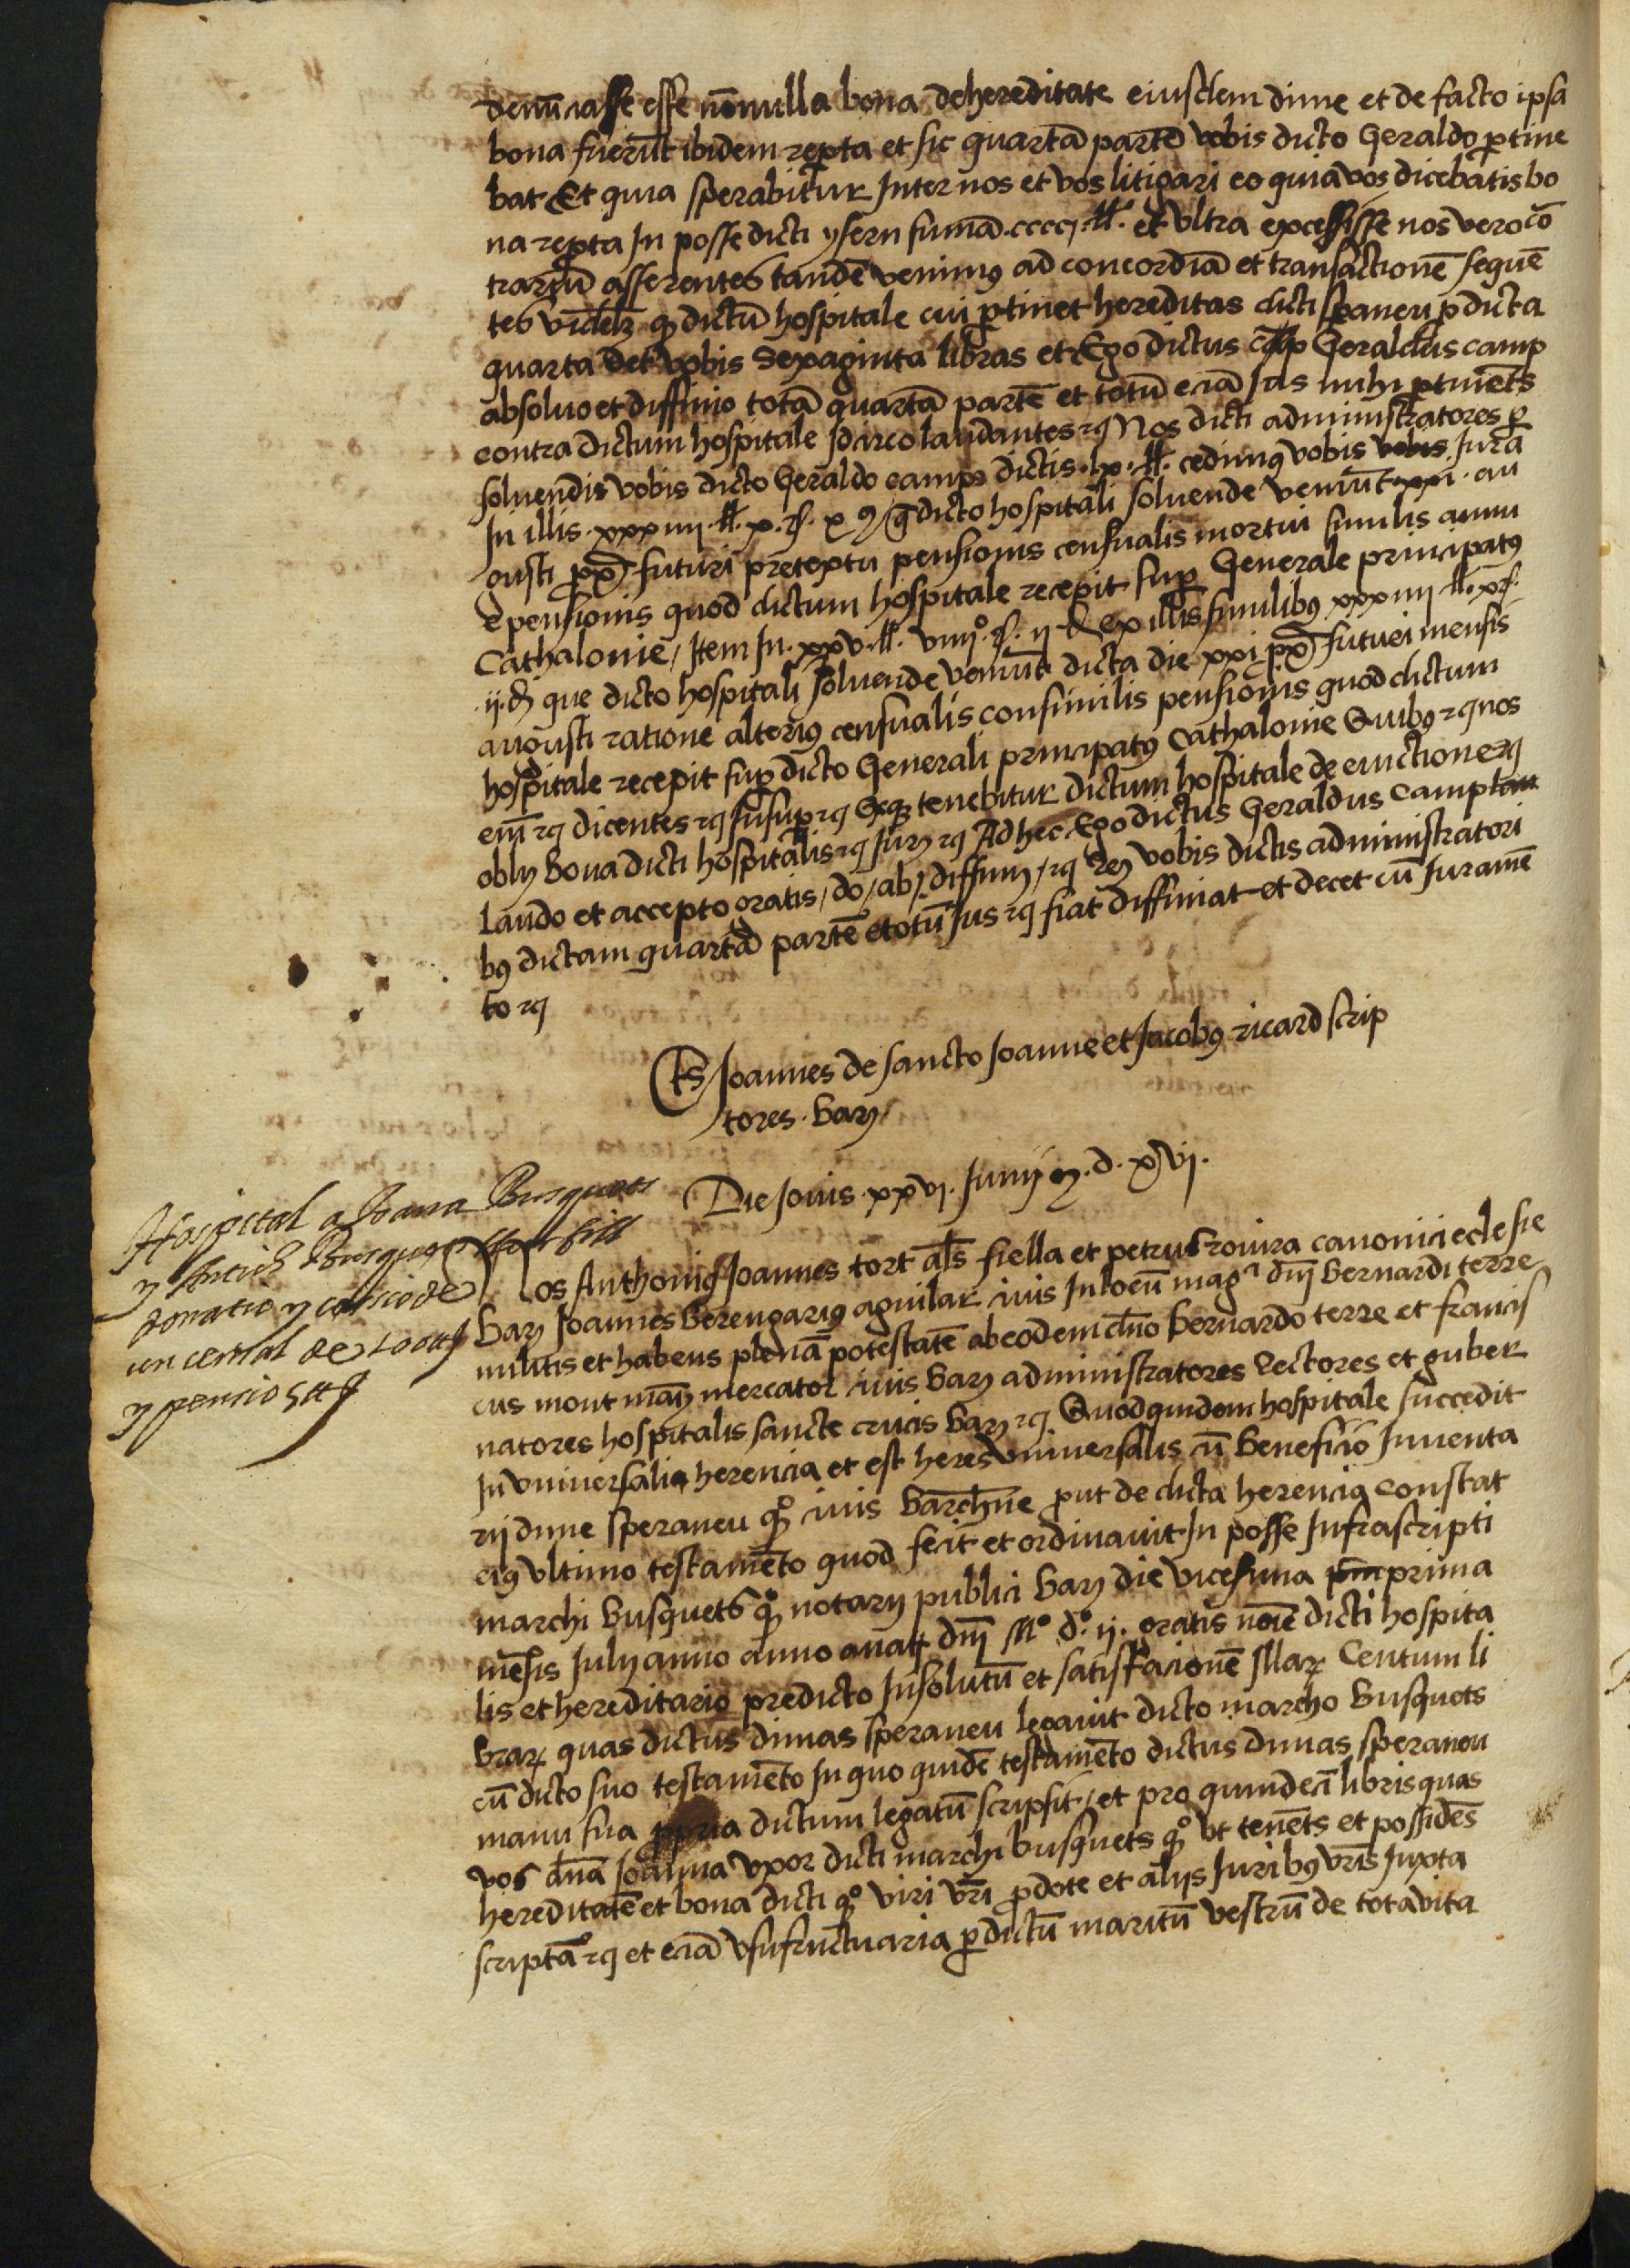 denūciasse esse nōnulla bona de hereditate eiusdem dime et de facto ipsa
bona fuerūt ibidem reperta et sic quartā partē vobis dicto Geraldo ꝑtine
bat Et quia sperabitur Inter nos et vos litigari eo quia vos dicebatis bo
na reperta In posse dicti ysern sumā .cccc. ₶. et vltra excessisse nos vero cō
trariū asserentes tandē venimꝰ ad concordiā et transactionē sequē
tes vidꝫ ꝙ dictū hospitale cui ꝑtinet hereditas dicti speraneu ꝓ dicta
quarta det vobis Sexaginta libras et Ego dictus Geraldus camp
absoluo et diffinio totā quartā partē et totū eciā Jus mihi ꝑtinēts
contra dictum hospitale Idcirco laudantes ⁊ꝯ Nos dicti administratores ꝑ
soluendis vobis dicto Geraldo camps dictis .lx. ₶. cedimꝰ vobis Jura
In illis .xxxiiii ₶. x. ss. dicto hospitali soluende veniūt xxi. au
gusti ꝓxͦ futuri pretextu pensionis censualis mortui similis annu
e pensionis quod dictum hospitale recepit suꝑ Generale principatꝰ
Cathalonie / Item In .xxv. ₶. viiiiͦ. ss. ii d ex illis similibꝰ xxxiiii ₶. x ss.
.ii. d que dicto hospitali soluende veniūt dicta die xxi ꝓxͦ futuri mensis
augusti ratione alteriꝰ censualis consimilis pensionis quod dictum
hospitale recepit suꝑ dicto Generali principatꝰ Cathalonie Quibꝰ ⁊ꝯ nos
enī ⁊ꝯ dicentes ⁊ꝯ Insuꝑ ⁊ꝯ tenebitur dictum hospitale de euictione ⁊ꝯ
obly bona dicti hospitalis ⁊ꝯ Jury ⁊ꝯ Ad hec Ego dictus Geraldus Camp
laudo et accepto gratis / do / abs / diffiny / ⁊ꝯ vobis dictis administratori
bꝰ dictam quartā partē et totū Jus ⁊ꝯ fiat diffiniat et decet cū Juramē
to ⁊ꝯ
Ts / Joannes de sancto Joanne et Jacobꝰ ricard scrip
tores . Bary
Die Jouis .xxvi. Junij M. d. xvi.
Hospital a Joana Busquets
y Busquets
donatio y cessio de
un censal de 100 ₶
y pensio 5 ₶
Nos Anthoniꝰ Joannes tort als fiella et petrus rouira canonici eclesie
Bary Joannes Berengariꝰ aguilar ciuis In locū magci dnj Bernardi terre
militis et habens plenā potestatē ab eodem dno Bernardo terre et francis
cus mont many mercator ciuis Bary administratores Rectores et guber
natores hospitalis sancte crucis Bary ⁊ꝯ Quod quidem hospitale succedit
In vniuersali herencia et est heres vniuersalis cū beneficio Inuenta
rij dime speraneu qͦ ciuis Barchne ꝓut de dicta herencia constat
eiꝰ vltimo testamēto quod fecit et ordinauit In posse Infrascripti
marchi Busquets qͦ notarij publici Bary die vicesima prima
mensis Julij anno anno a nat dnj Mͦ dͦ ii. gratis noīe dicti hospita
lis et hereditario predicto Insolutū et satisfacionē Illaꝝ Centum li
braꝝ quas dictus dimas speraneu legauit dicto marcho Busquets
cū dicto suo testamēto In quo quidē testamēto dictus dimas speraneu
manu sua ꝓpria dictum legatū scripsit / et pro quindecī libris quas
vos dna Joanna vxor dicti marchi busquets qͦ vt tenēts et possidēs
hereditatē et bona dicti qͦ viri vri ꝓ dote et alijs Juribꝰ vris Juxta
scriptā ⁊ꝯ et eciā vsufructuaria ꝑ dictū maritū vestrū de tota vita